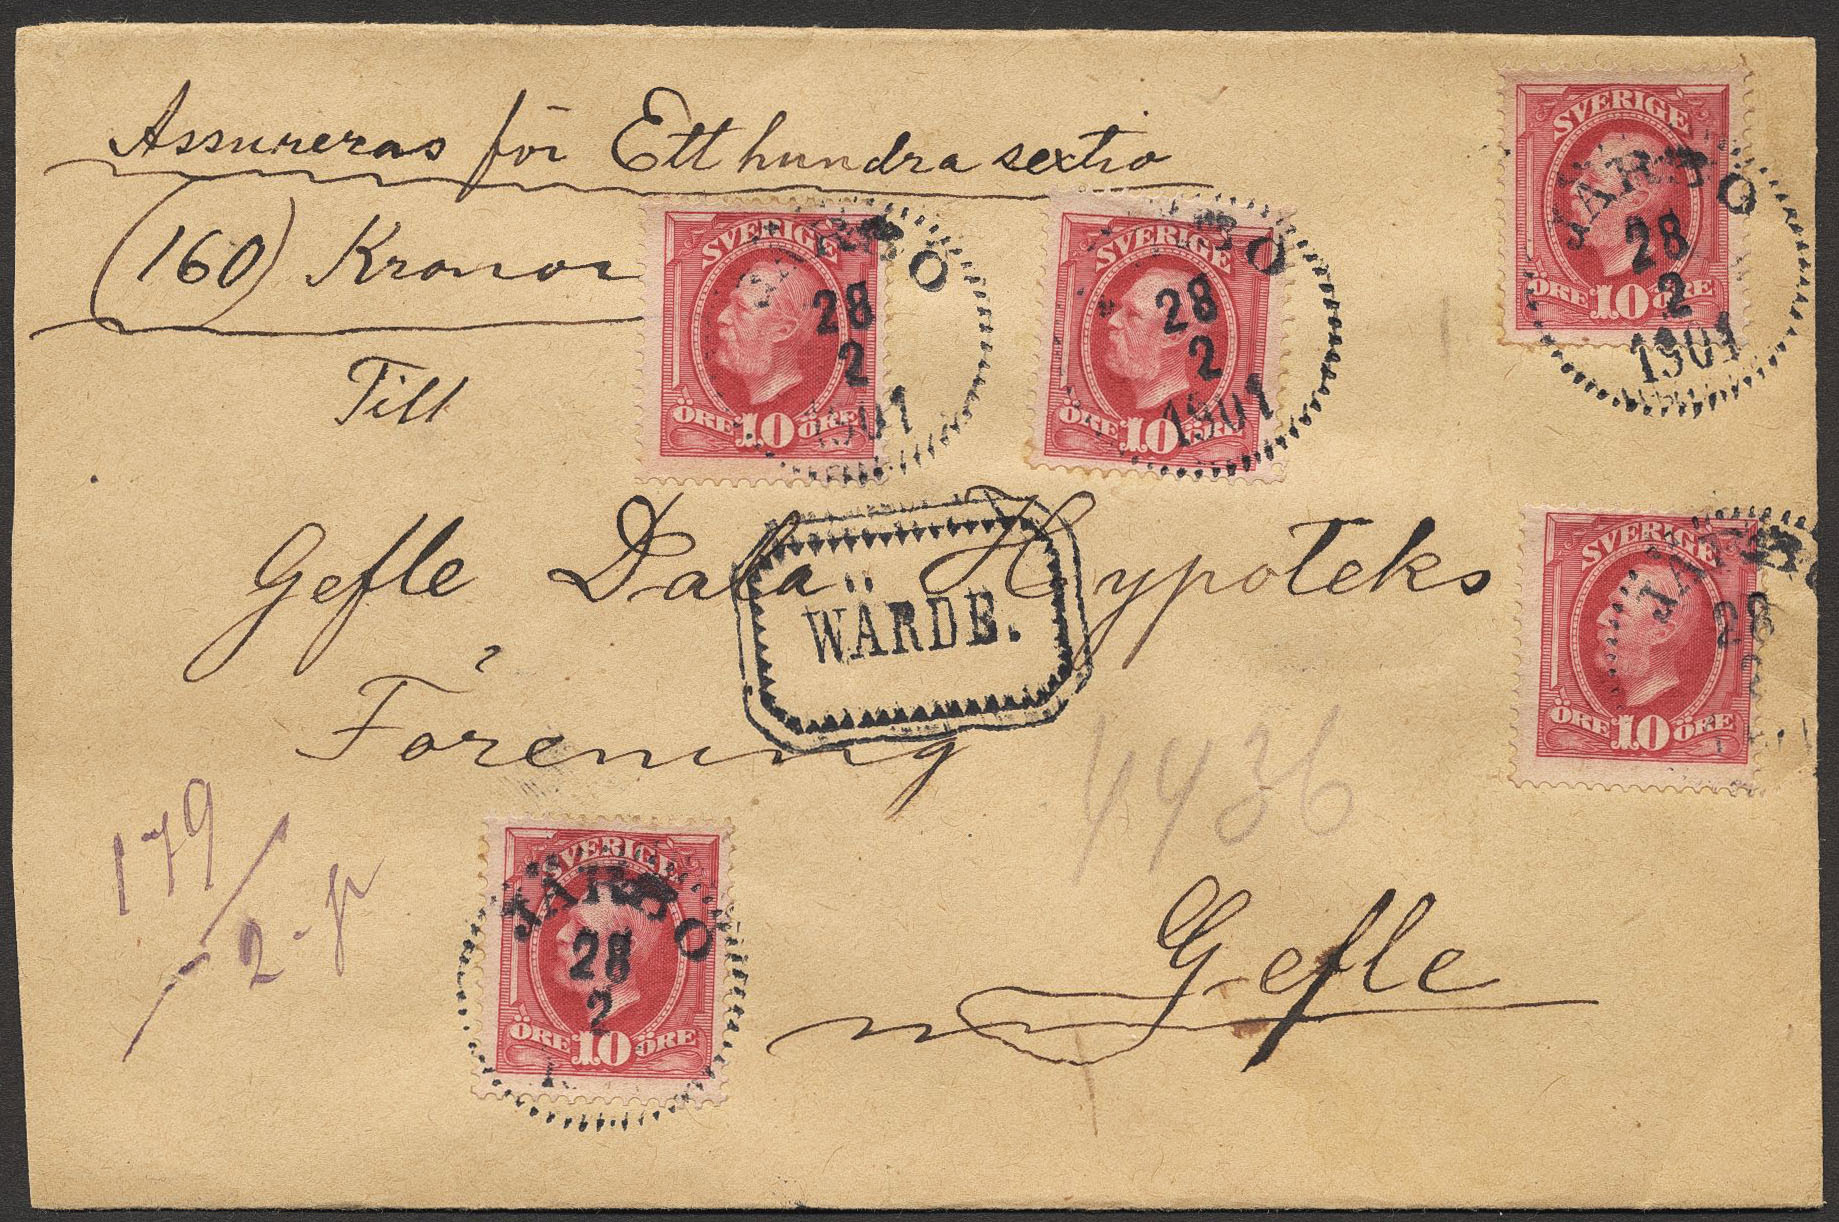 Assureras för Ett hundra sextio
(160) Kronor
Till
Gefle Dala Hypoteks
Förening
Gefle
WÄRDE.
4436
179
2
SVERIGE
ÖRE 10 ÖRE
JÄRBO
28
2
1901
SVERIGE
ÖRE 10 ÖRE
JÄRBO
28
2
1901
SVERIGE
ÖRE 10 ÖRE
JÄRBO
28
2
1901
SVERIGE
ÖRE 10 ÖRE
JÄRBO
28
2
SVERIGE
ÖRE 10 ÖRE
JÄRBO
28
2